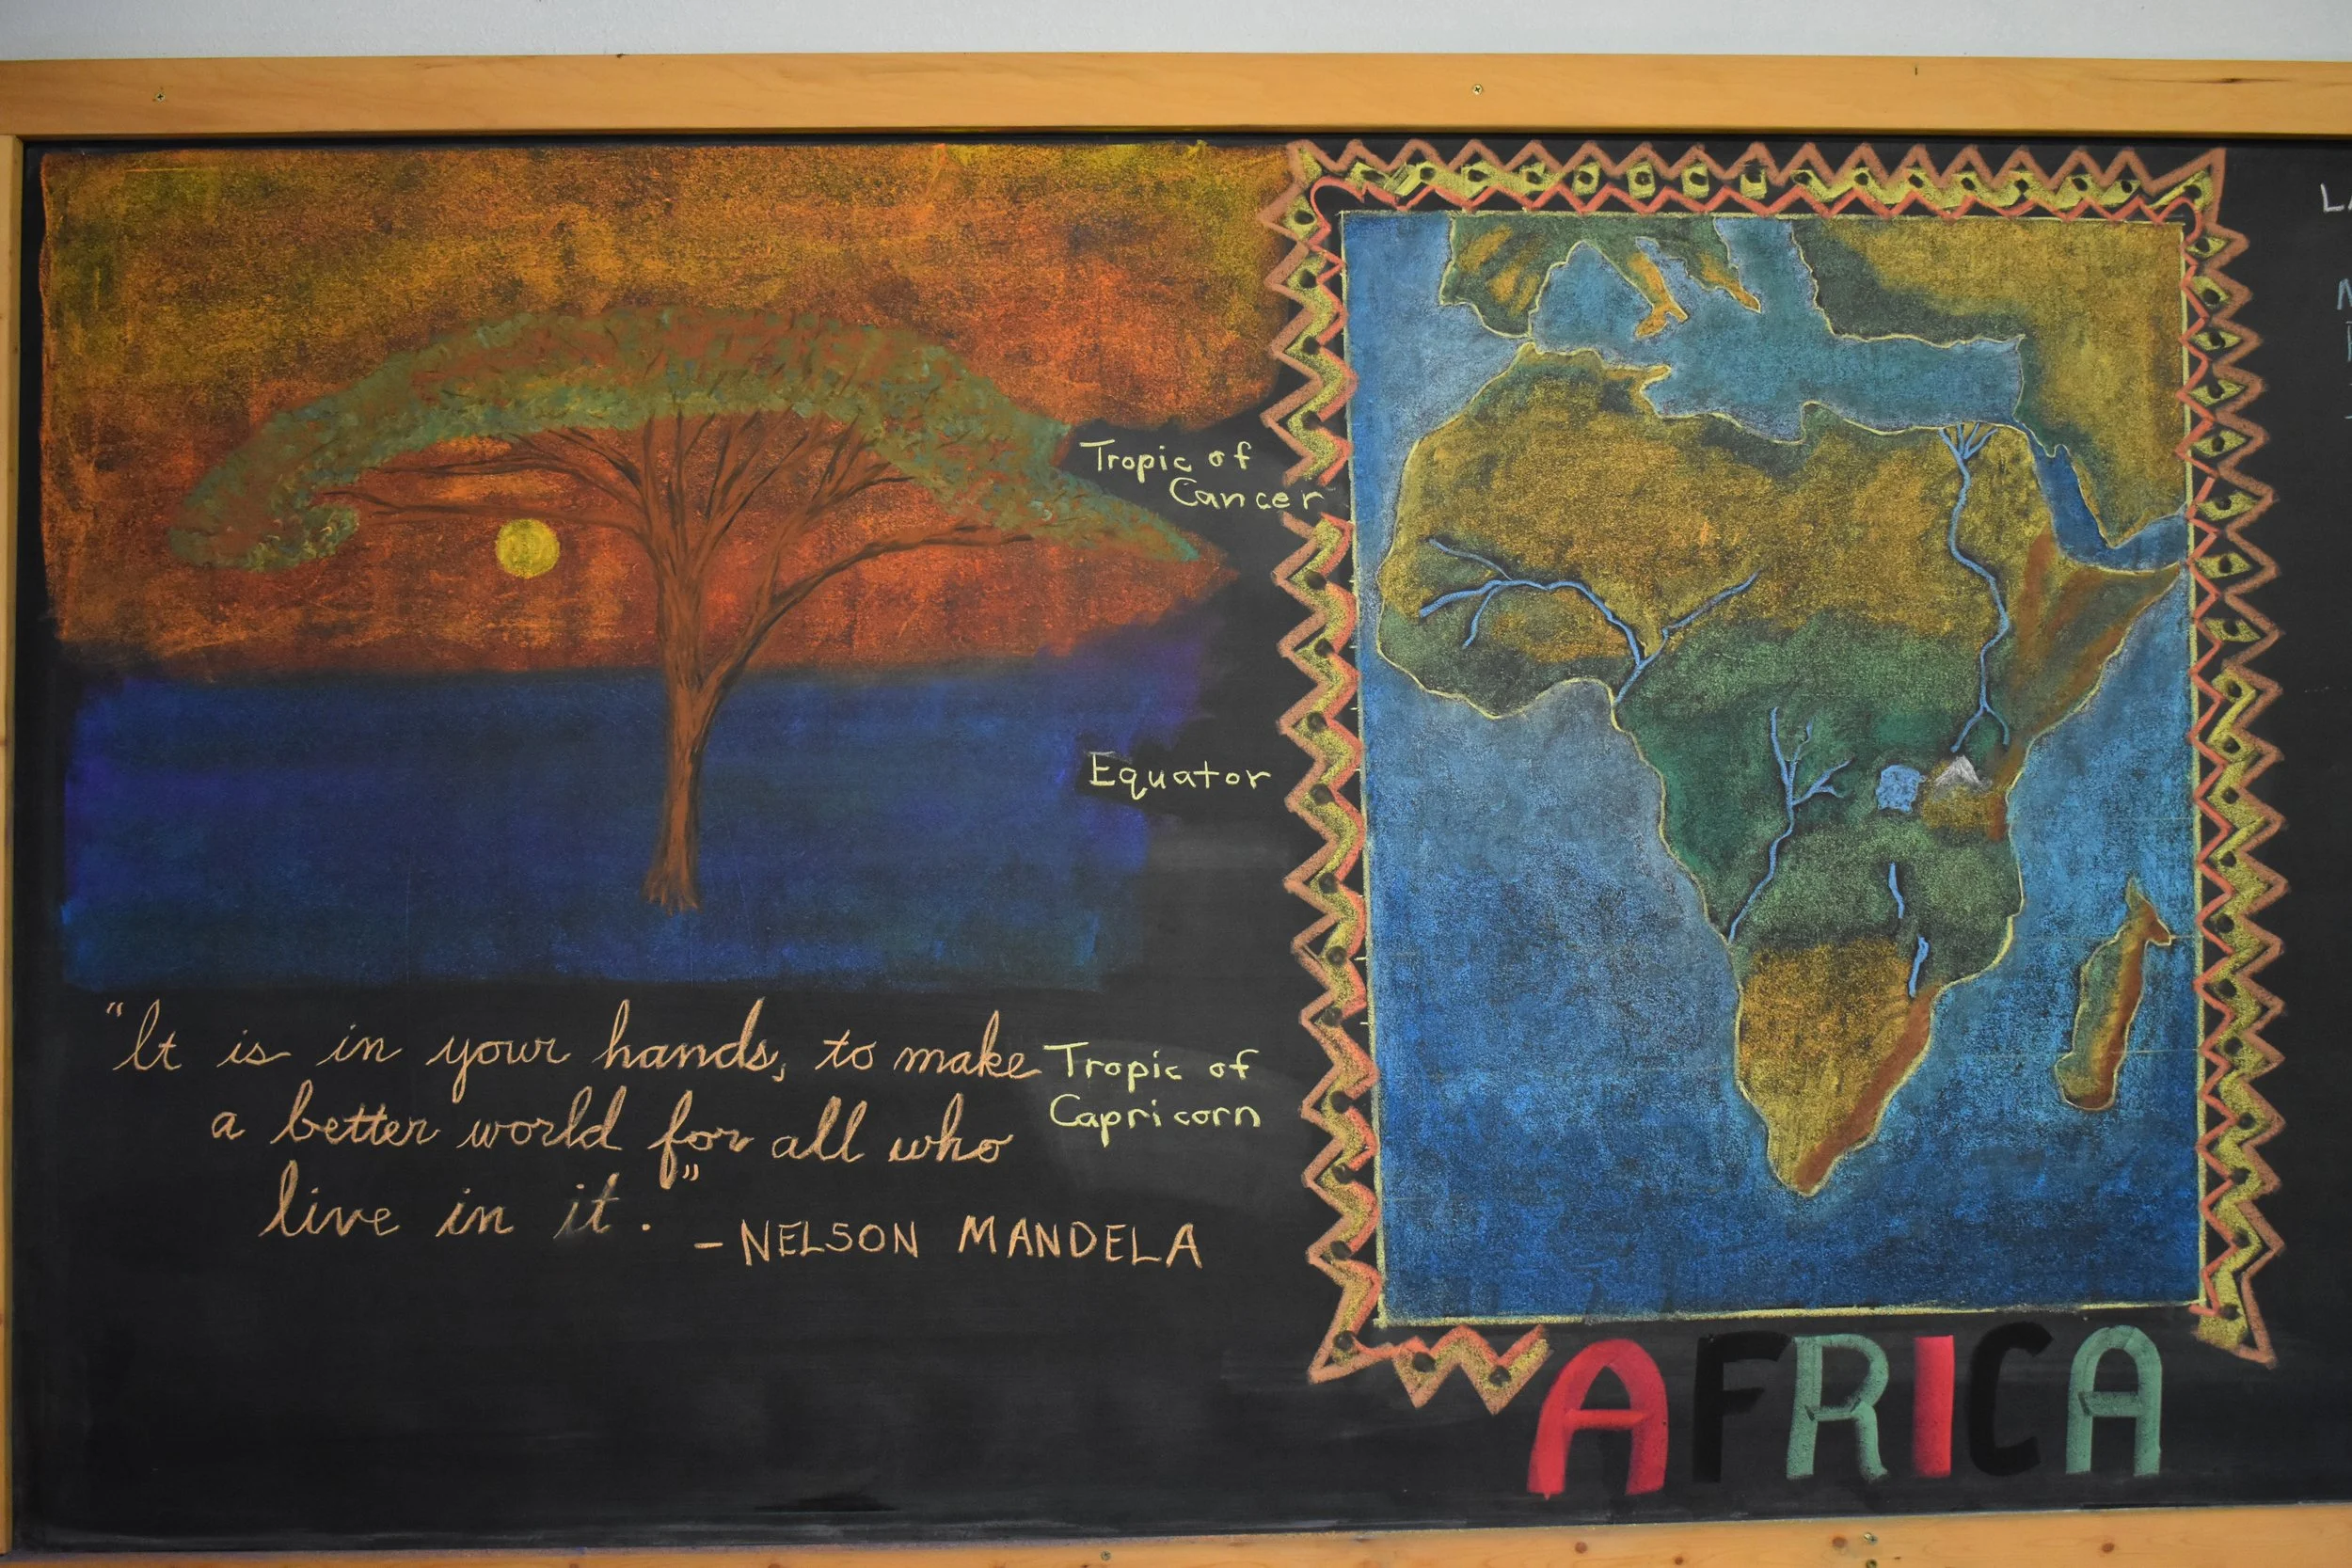 Tropic of
Cancer
Equator
"It is in your hands, to make
a better world for all who
live in it."
- NELSON MANDELA
Tropic of
Capricorn
AFRICA